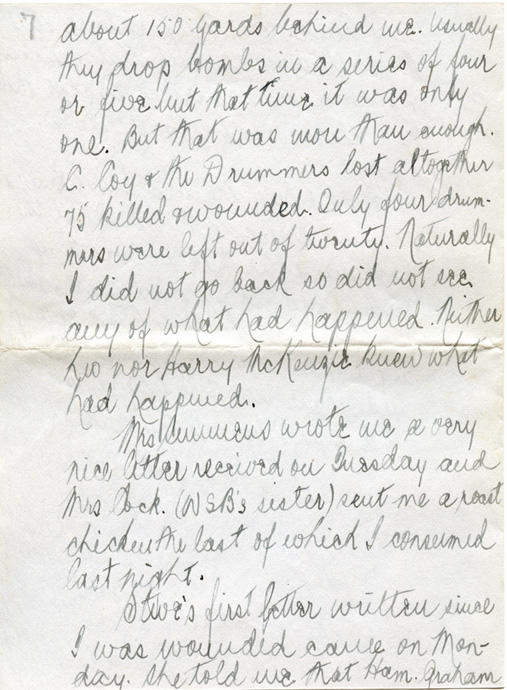 7
about 150 yards behind me. Usually
they drop bombs in a series of four
or five but that time it was only
one. But that was more than enough.
C. Coy & the Drummers lost altogether
75 killed & wounded. Only four drum-
mers were left out of twenty. Naturally
I did not go back so did not see
any of what had happened. Neither
nor Harry McKenzie knew what
had happened.
Mrs wrote me a very
nice letter received on Tuesday and
Mrs (WSB's sister) sent me a roast
chicken the last of which I consumed
last night.
first letter written since
I was wounded came on Mon-
day. She told me that Ham. Graham